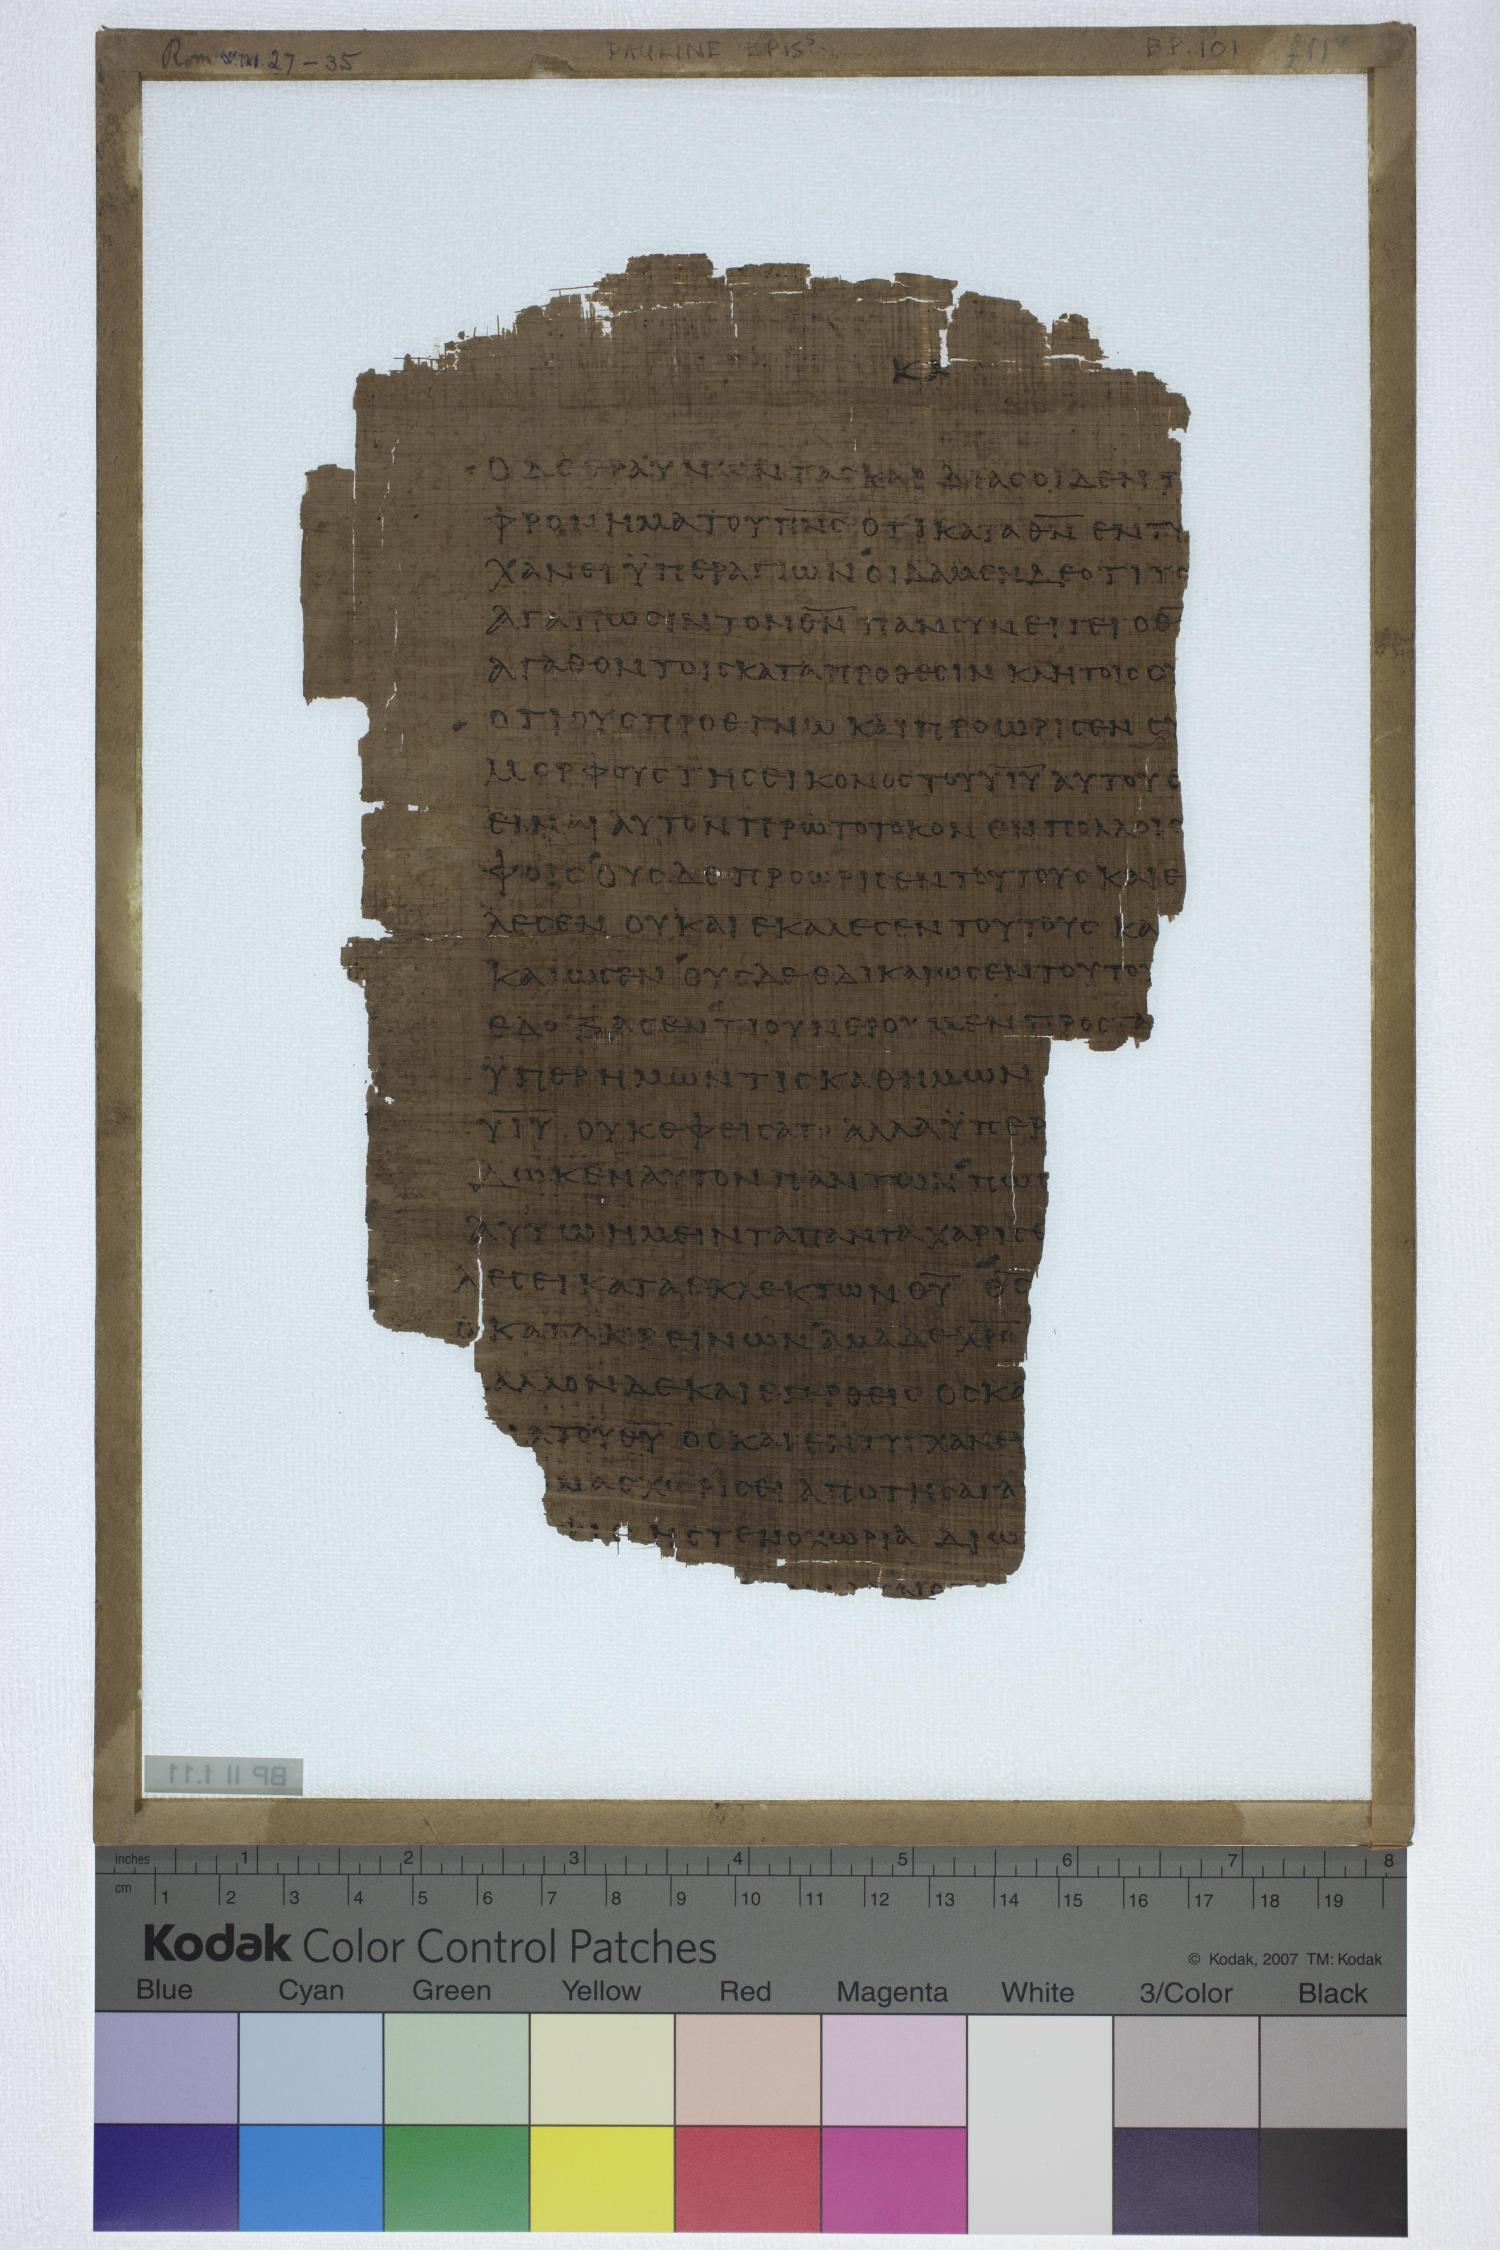 Rom VIII 27-35 PAULINE EPIS? BP.101 f11
ΚΑ
Ο ΔΕ ΕΡΑΥΝΩΝ ΤΑΣ ΚΑΡΔΙΑΣ ΟΙΔΕΝ Τ
ΦΡΟΝΗΜΑ ΤΟΥ Π̅Ν̅Σ̅ ΟΤΙ ΚΑΤΑ Θ̅Ν̅ ΕΝΤΥ
ΧΑΝΕΙ ΫΠΕΡ ΑΓΙΩΝ ΟΙΔΑΜΕΝ ΔΕ ΟΤΙ ΤΟ
ΑΓΑΠΩΣΙΝ ΤΟΝ Θ̅Ν̅ ΠΑΝ ΣΥΝΕΡΓΕΙ Ο Θ̅
ΑΓΑΘΟΝ ΤΟΙΣ ΚΑΤΑ ΠΡΟΘΕΣΙΝ ΚΛΗΤΟΙΣ ΟΥ
ΟΤΙ ΟΥΣ ΠΡΟΕΓΝΩ ΚΑΙ ΠΡΟΩΡΙΣΕΝ ΣΥ
ΜΟΡΦΟΥΣ ΤΗΣ ΕΙΚΟΝΟΣ ΤΟΥ Υ̅Ι̅Υ̅ ΑΥΤΟΥ Ε
ΕΙΝΑΙ ΑΥΤΟΝ ΠΡΩΤΟΤΟΚΟΝ ΕΝ ΠΟΛΛΟΙΣ
ΦΟΙΣ ΟΥΣ ΔΕ ΠΡΟΩΡΙΣΕΝ ΤΟΥΤΟΥΣ ΚΑΙ Ε
ΛΕΣΕΝ ΟΥ ΚΑΙ ΕΚΑΛΕΣΕΝ ΤΟΥΤΟΥΣ ΚΑ
ΚΑΙΩΣΕΝ ΟΥΣ ΔΕ ΕΔΙΚΑΙΩΣΕΝ ΤΟΥΤΟΥ
ΕΔΟΞΑΣΕΝ ΤΙ ΟΥΝ ΕΡΟΥΜΕΝ ΠΡΟΣ ΤΑ
ΫΠΕΡ ΗΜΩΝ ΤΙΣ ΚΑΘ ΗΜΩΝ
Υ̅Ι̅Υ̅ ΟΥΚ ΕΦΕΙΣΑΤΟ ΑΛΛΑ ΫΠΕΡ
ΔΩΚΕΝ ΑΥΤΟΝ ΠΑΝΤΩΝ ΠΩΣ
ΑΥΤΩ ΗΜΕΙΝ ΤΑ ΠΑΝΤΑ ΧΑΡΙΣΕ
ΛΕΣΕΙ ΚΑΤΑ ΕΚΛΕΚΤΩΝ Θ̅Υ̅ Θ̅Σ̅
Ο ΚΑΤΑΚΡΕΙΝΩΝ ΑΜΑ ΔΕ Χ̅Ρ̅Σ̅
ΑΛΛΟΝ ΔΕ ΚΑΙ ΕΓΕΡΘΕΙΣ ΟΣ ΚΑ
ΙΑ ΤΟΥ Θ̅Υ̅ ΟΣ ΚΑΙ ΕΝΤΥΓΧΑΝΕΙ
ΜΑΣ ΧΩΡΙΣΕΙ ΑΠΟ ΤΗΣ ΑΓΑ
ΨΙΣ Η ΣΤΕΝΟΧΩΡΙΑ Η ΔΙΩ
BP II f.11
inches 1 2 3 4 5 6 7 8
cm 1 2 3 4 5 6 7 8 9 10 11 12 13 14 15 16 17 18 19
Kodak Color Control Patches © Kodak, 2007 TM: Kodak
Blue Cyan Green Yellow Red Magenta White 3/Color Black